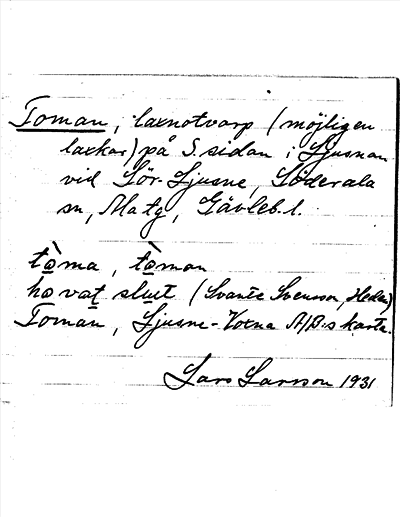 Toman, laxnotvarp (möjligen
laxkar) på S. sidan i Ljusnan
vid Sör-Ljusne, Söderala
sn, Ma tg, Gävleb. l.
tò̲ma, tò̲man
ho vaṯ slut (Svante Svensson, Heden)
Toman, Ljusne-Voxna A/B:s karta.
Lars Larsson 1931